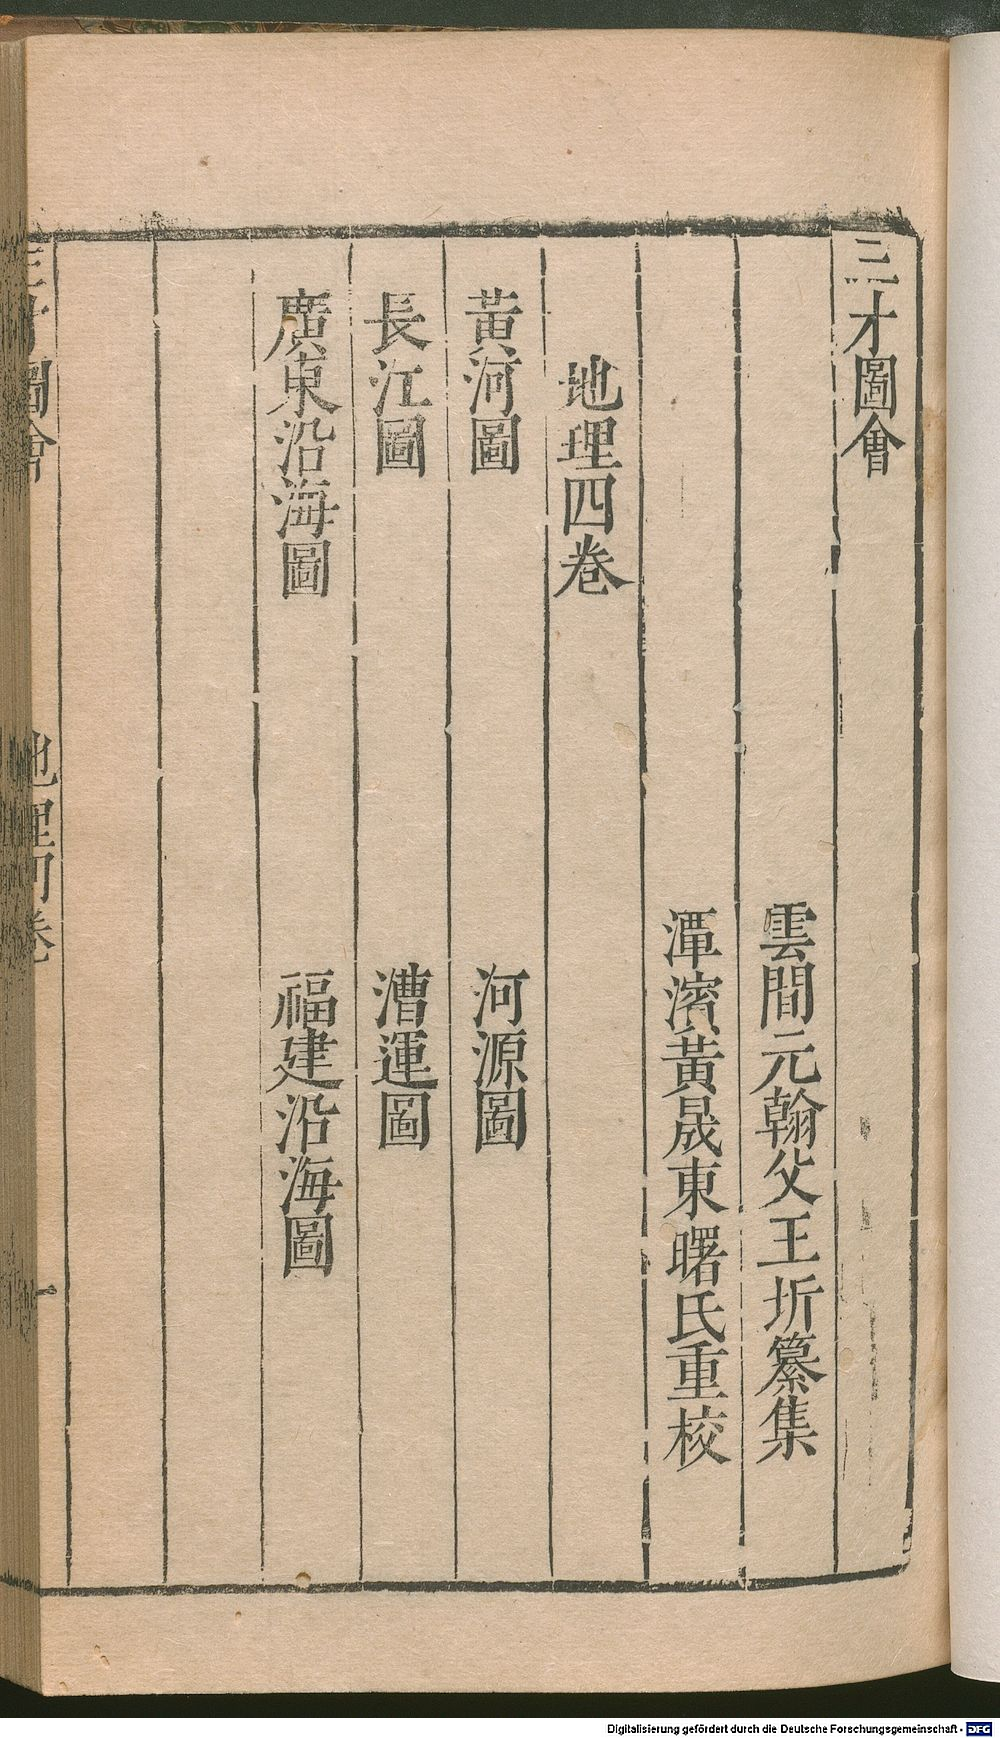 三才圖會
雲間元翰父王圻纂集
潭濱黃晟東曙氏重校
地理四卷
黃河圖 河源圖
長江圖 漕運圖
廣東沿海圖 福建沿海圖
三才圖會 地理四卷 一
Digitalisierung gefördert durch die Deutsche Forschungsgemeinschaft - DFG